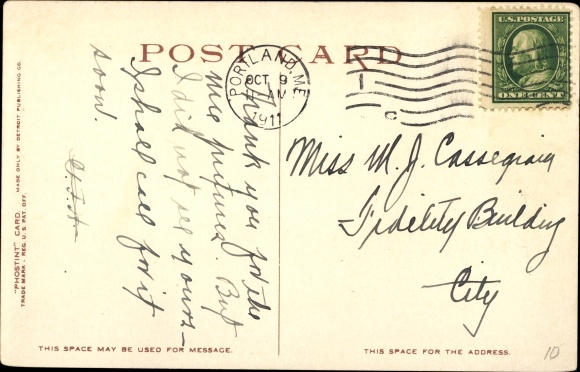 POST CARD
PORTLAND, ME.
OCT 9
AM
1911
C
U.S. POSTAGE
ONE CENT
"PHOSTINT" CARD. MADE ONLY BY DETROIT PUBLISHING CO.
TRADE MARK - REG. U.S. PAT. OFF.
Thank you for the
nice pictures. But
I did not see yours—
I shall call for it
soon.
Miss M. J. Cassegrain
Fidelity Building
City
THIS SPACE MAY BE USED FOR MESSAGE.
THIS SPACE FOR THE ADDRESS.
10